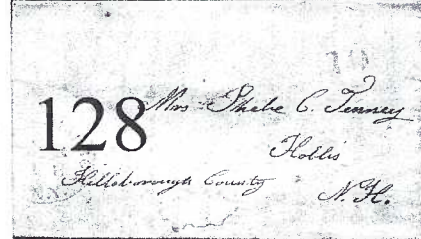 128
Mrs Phebe C. Tenney
Hollis
Hillsborough County
N. H.